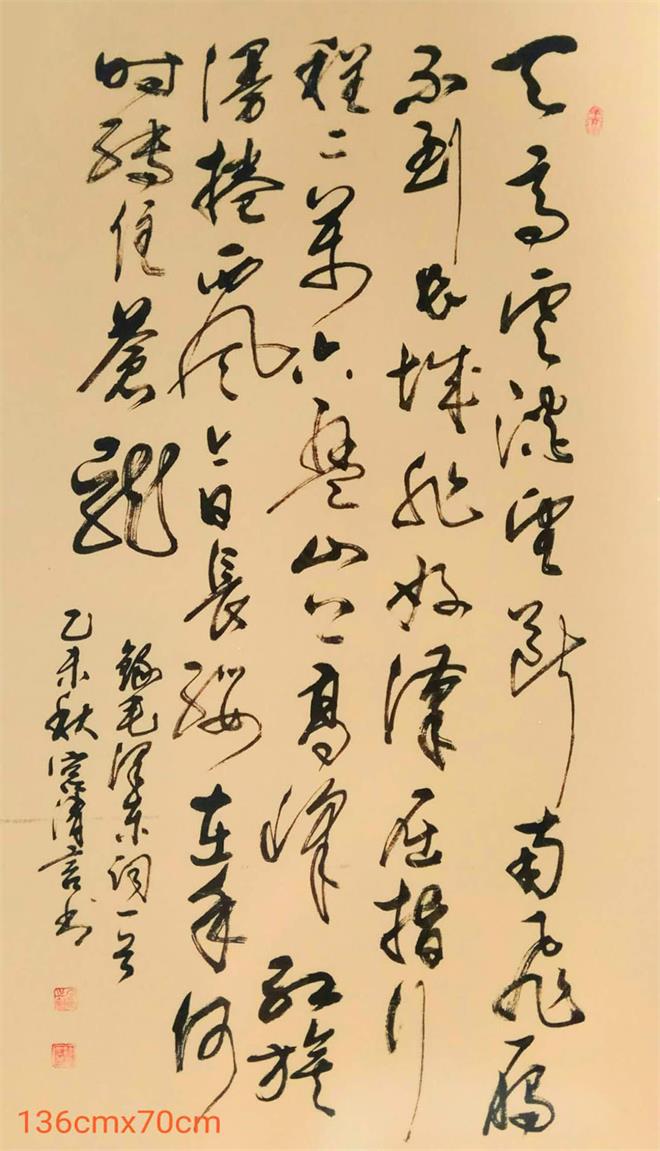 天高雲淡望斷南飛雁
不到長城非好漢屈指行
程二萬六盤山上高峰紅旗
漫捲西風今日長纓在手何
时縛住蒼龍
錄毛澤东詞一首
乙未秋清言书
136cmx70cm